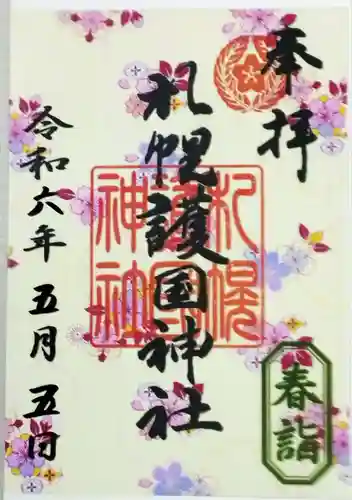 奉拝
札幌護国神社
札幌護国神社
令和六年五月五日
春詣